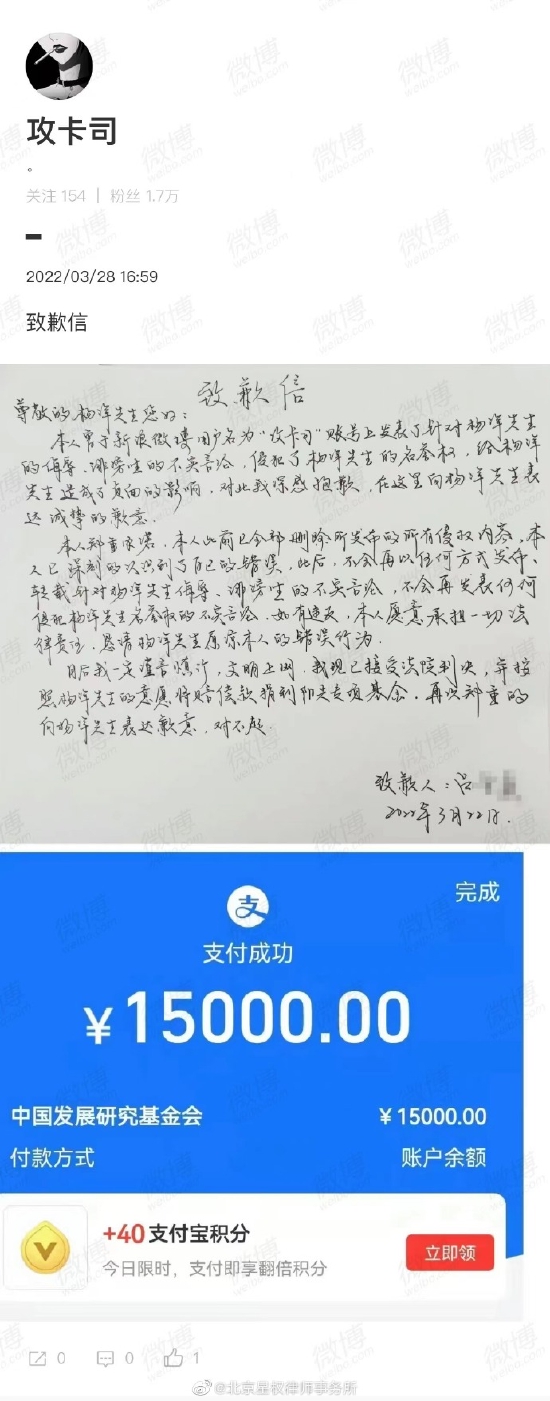 攻卡司
。
关注 154 | 粉丝 1.7万
2022/03/28 16:59
致歉信
致歉信
尊敬的杨洋先生您好：
本人曾于新浪微博用户名为“攻卡司”账号上发表了针对杨洋先生
的侮辱、诽谤性的不实言论，侵犯了杨洋先生的名誉权，给杨洋
先生造成了负面的影响，对此我深感抱歉，在这里向杨洋先生表
达诚挚的歉意。
本人郑重承诺，本人此前已全部删除所发布的所有侵权内容，本
人已深刻的认识到了自己的错误，此后，不会再以任何方式发布、
转载针对杨洋先生侮辱、诽谤性的不实言论，不会再发表任何
侵犯杨洋先生名誉权的不实言论，如有违反，本人愿意承担一切法
律责任，恳请杨洋先生原谅本人的错误行为。
日后我一定谨言慎行，文明上网，我现已接受法院判决，并按
照杨洋先生的意愿将赔偿款捐到阳光专项基金会，再次郑重的
向杨洋先生表达歉意，对不起
致歉人：吕
2022年3月22日.
完成
支付成功
¥15000.00
中国发展研究基金会 ¥15000.00
付款方式 账户余额
+40支付宝积分
今日限时，支付即享翻倍积分
立即领
0 0 1
@北京星权律师事务所
微博
weibo.com